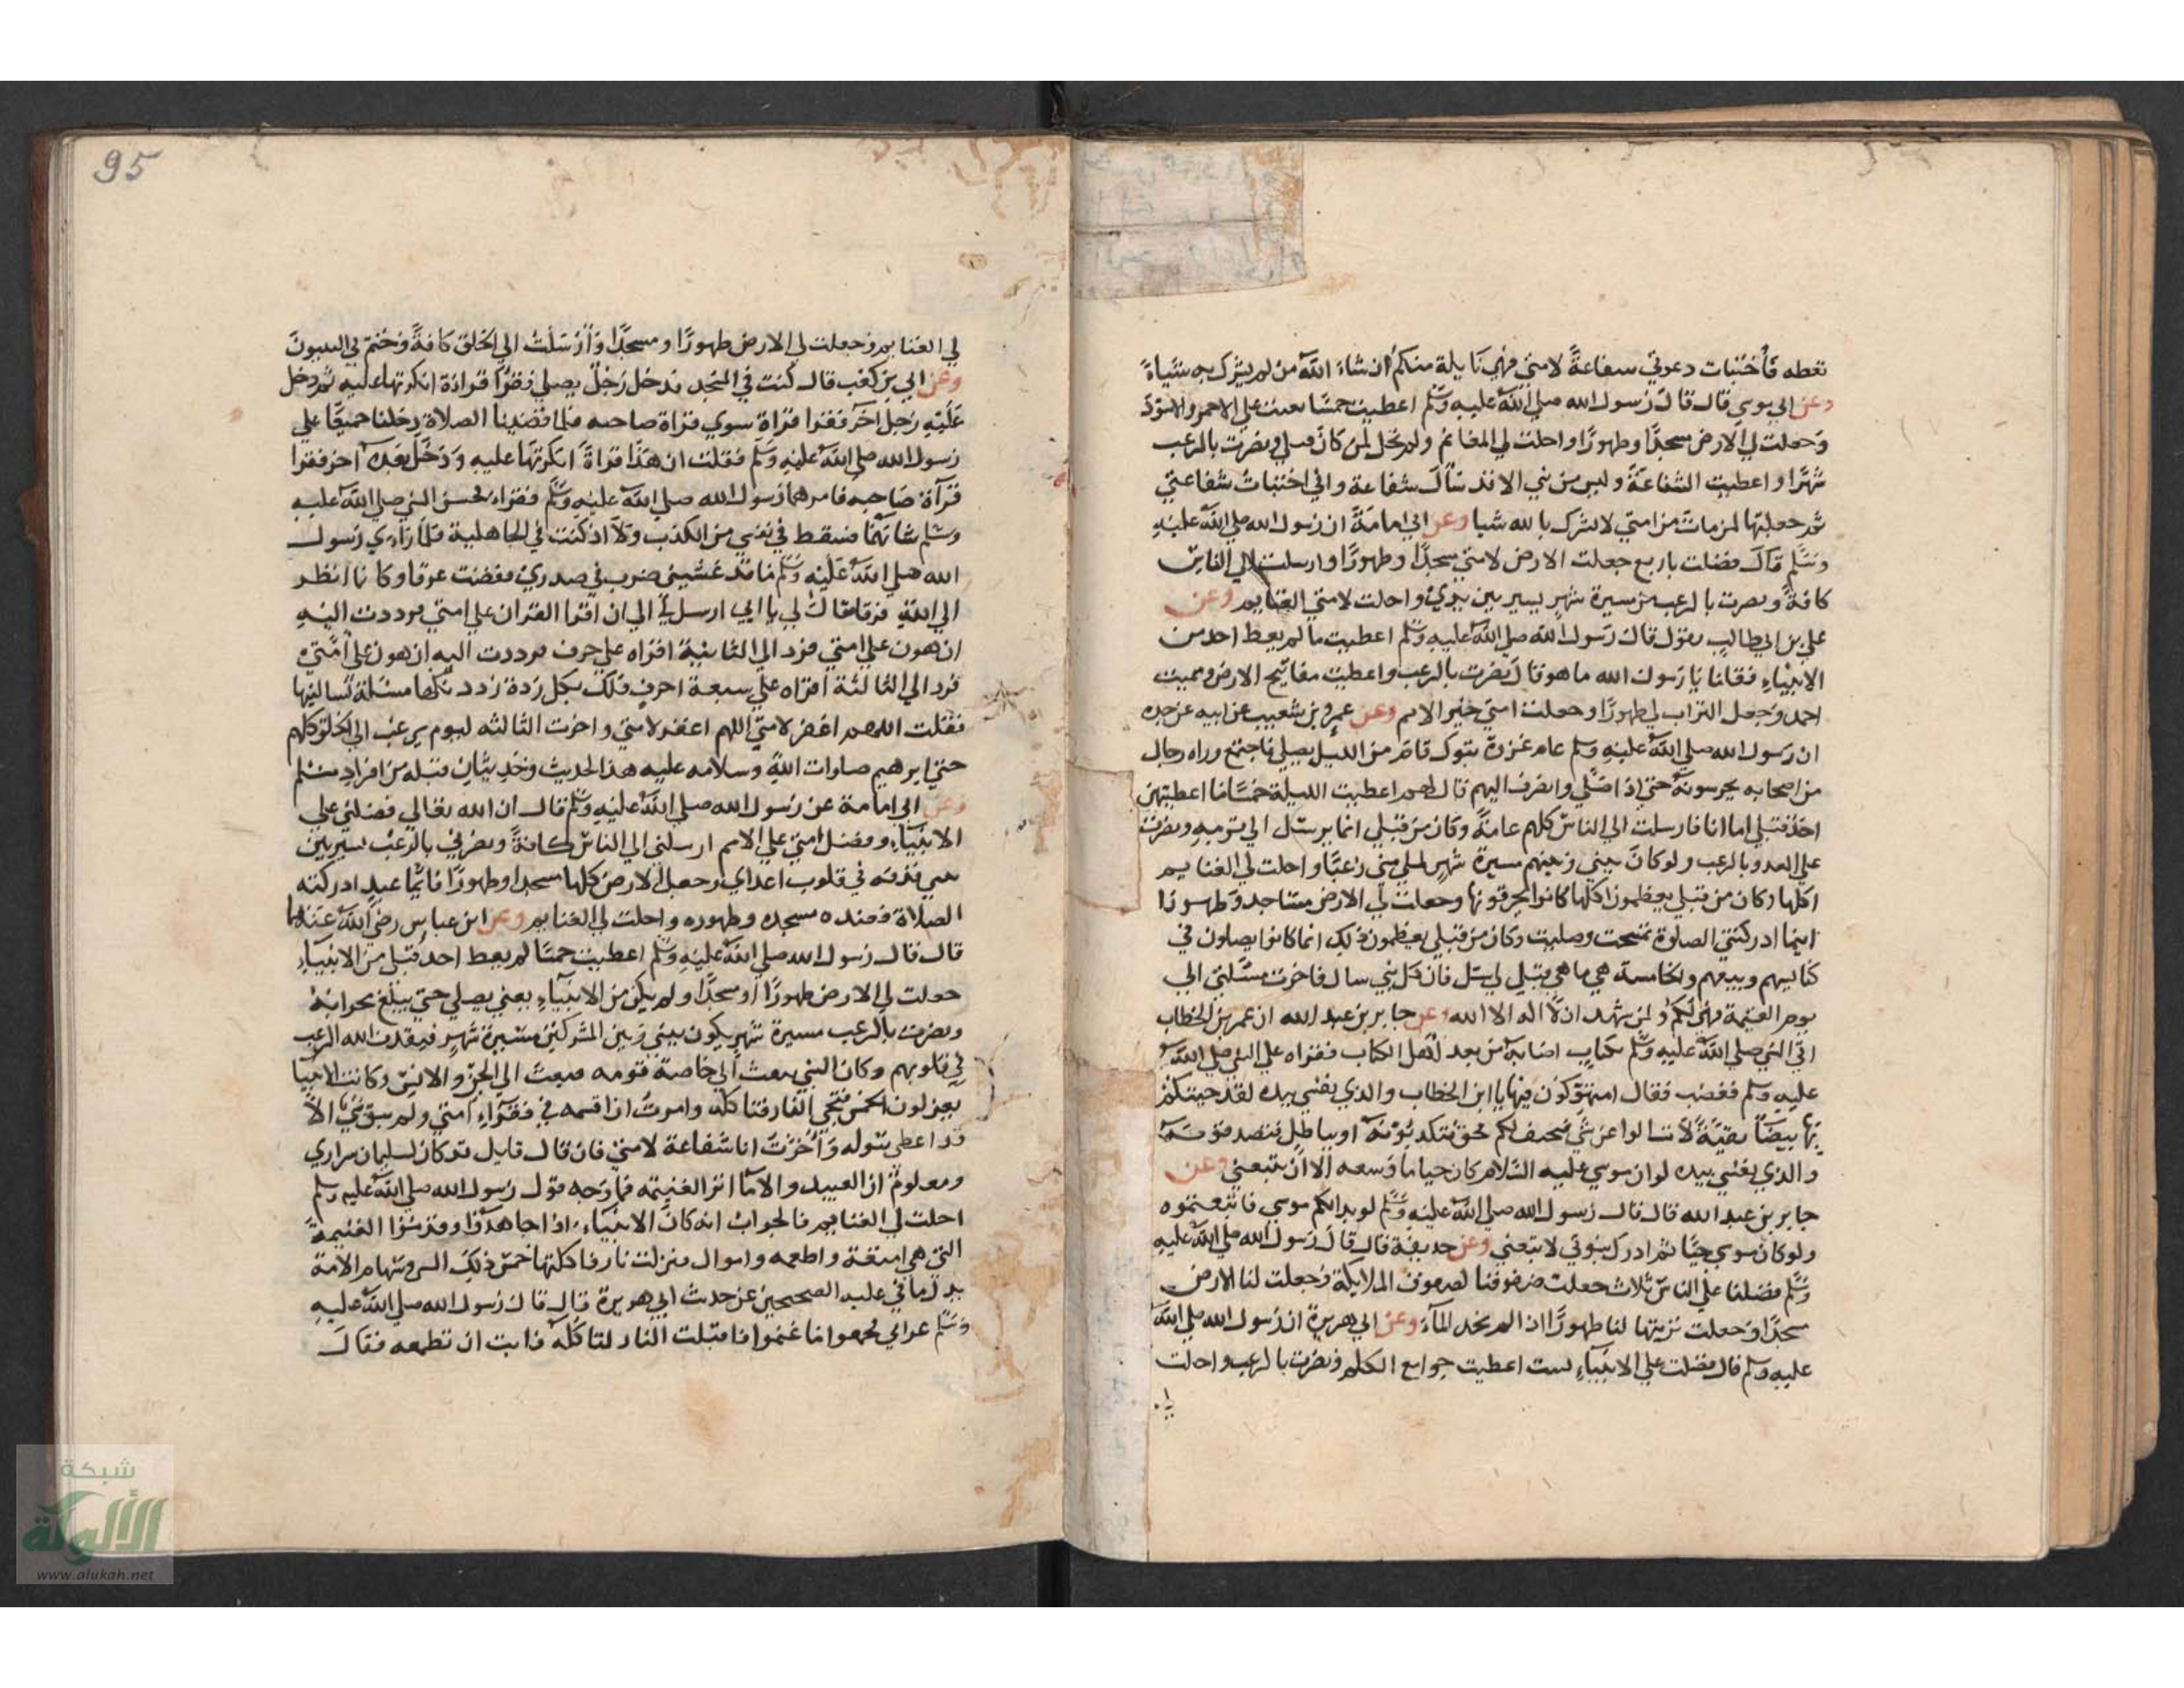 تعطه فأختبات دعوتي سفاعةً لامتي فهي نايلة منكم ان شاء الله من لم يشرك به شياءً
وعن ابي موسي قال قال رسول الله صلي الله عليه وسلم اعطيت خمسًا بعثت علي الاحمر والاسود
وجعلت لي الارض مسجدًا وطهورًا واحلت لي المغانم ولم تحل لمن كان قبلي ونصرت بالرعب
شهرًا واعطيت الشفاعة وليس من نبي الا قد سأل شفاعة واني اختبات شفاعتي
ثم جعلتها لمن مات من امتي لا يشرك بالله شيا وعن ابي امامة ان رسول الله صلي الله عليه
وسلم قال فضلت باربع جعلت الارض لامتي مسجدًا وطهورًا وارسلت الي الناس
كافة ونصرت بالرعب من مسيرة شهر يسير بين يدي واحلت لامتي الغنايم وعن
علي بن ابي طالب يقول قال رسول الله صلي الله عليه وسلم اعطيت ما لم يعط احد من
الانبياء فقلنا يا رسول الله ما هو قال نصرت بالرعب واعطيت مفاتيح الارض وسميت
احمد وجعل التراب لي طهورًا وجعلت امتي خير الامم وعن عمرو بن شعيب عن ابيه عن جده
ان رسول الله صلي الله عليه وسلم عام غزوة تبوك قام من الليل يصلي فاجتمع وراه رجال
من اصحابه يحرسونه حتي اذا صلي وانصرف اليهم قال لهم اعطيت الليلة خمسًا ما اعطيتهن
احد قبلي اما انا فارسلت الي الناس كلهم عامة وكان من قبلي انما يرسل الي قومه ونصرت
علي العدو بالرعب ولو كان بيني وبينهم مسيرة شهر لملي مني رعبًا واحلت لي الغنايم
اكلها وكان من قبلي يعظمون اكلها كانوا يحرقونها وجعلت لي الارض مساجد وطهورًا
اينما ادركتني الصلوة تمسحت وصليت وكان من قبلي يعظمون ذلك انما كانوا يصلون في
كنايسهم وبيعهم والخامسة هي ما هي قيل لي سل فان كل نبي سال فاخرت مسئلتي الي
يوم القيمة فهي لكم ولمن شهد ان لا اله الا الله وعن جابر بن عبد الله ان عمر بن الخطاب
اتي النبي صلي الله عليه وسلم بكتاب اصابه من بعض اهل الكتاب فقراه علي النبي صلي الله
عليه وسلم فغضب فقال امتهوكون فيها يا ابن الخطاب والذي نفسي بيده لقد جيتكم
بها بيضاً نقية لا تسالوا عن شي فيخبركم بحق فتكذبونه او بباطل فتصدقونه
والذي نفسي بيده لو ان موسي عليه السلام كان حيا ما وسعه الا ان يتبعني وعن
جابر بن عبد الله قال قال رسول الله صلي الله عليه وسلم لو بدا لكم موسي فاتبعتموه
ولو كان موسي حيًا ثم ادرك نبوتي لاتبعني وعن حذيفة قال قال رسول الله صلي الله عليه
وسلم فضلنا علي الناس بثلاث جعلت صفوفنا كصفوف الملايكة وجعلت لنا الارض
مسجدًا وجعلت تربتها لنا طهورًا اذا لم نجد المآء وعن ابي هريرة ان رسول الله صلي الله
عليه وسلم قال فضلت علي الانبياء بست اعطيت جوامع الكلم ونصرت بالرعب واحلت
95
لي الغنايم وجعلت لي الارض طهورًا ومسجدًا وأرسلت الي الخلق كافةً وختم بي النبيون
وعن ابي بن كعب قال كنت في المسجد فدخل رجل يصلي فقرا قراءة انكرتها عليه ثم دخل
عليه رجل آخر فقرا قراة سوي قراة صاحبه فلما قضينا الصلاة دخلنا جميعًا علي
رسول الله صلي الله عليه وسلم فقلت ان هذا قراة انكرتها عليه ودخل بعده اخر فقرا
قرآة صاحبه فامرهما رسول الله صلي الله عليه وسلم فقراء فحسن النبي صلي الله عليه
وسلم شانهما فسقط في نفسي من الكذب ولا اذ كنت في الجاهلية فلما رأي رسول
الله صلي الله عليه وسلم ما قد غشيني ضرب في صدري ففضت عرقا وكانما انظر
الي الله فرقا فقال لي يا ابي ارسل الي ان اقرا القران علي امتي فرددت اليه
ان هون علي امتي فرد الي الثانية اقراه علي حرف فرددت اليه ان هون علي امتي
فرد الي الثالثة اقراه علي سبعة احرف فلك بكل ردة رددتكها مسئلة تسالنيها
فقلت اللهم اغفر لامتي اللهم اغفر لامتي واخرت الثالثه ليوم يرغب الي الخلق كلهم
حتي ابرهيم صلوات الله وسلامه عليه هذا الحديث وحديثان قبله من افراد مسلم
وعن ابي امامة عن رسول الله صلي الله عليه وسلم قال ان الله تعالي فضلني علي
الانبيآء وفضل امتي علي الامم ارسلني الي الناس كافة ونصرني بالرعب يسير بين
يدي قذفه في قلوب اعداي وجعل لي الارض كلها مسجدا وطهورًا فايما عبد ادركته
الصلاة فعنده مسجده وطهوره واحلت لي الغنايم وعن ابن عباس رضي الله عنهما
قال قال رسول الله صلي الله عليه وسلم اعطيت خمسًا لم يعط احد قبلي من الانبيآء
جعلت لي الارض طهورًا ومسجدًا ولم يكن من الانبيآء يعني يصلي حتي يبلغ محرابه
ونصرت بالرعب مسيرة شهر يكون بيني وبين المشركين مسيرة شهر فيقذف الله الرعب
في قلوبهم وكان النبي يبعث الي خاصة قومه فبعثت الي الجن والانس وكانت الانبيا
يعزلون الخمس فتجي النار فتاكله وامرت ان اقسمه في فقرآء امتي ولم يبق نبي الا
قد اعطي سوله وأخرت انا شفاعة لامتي فان قال قايل قد كان لسليمان سراري
ومعلوم ان العبيد والامآ من الغنيمة فما وجه قول رسول الله صلي الله عليه وسلم
احلت لي الغنايم فالجواب انه كان الانبيآء اذا جاهدوا وقدموا الغنيمة
التي هي امتعة واطعمه واموال فنزلت نار فاكلتها خمس ذلك النبي وسهام الامة
يدل ما في عليه الصحيحين عن حديث ابي هريرة قال قال رسول الله صلي الله عليه
وسلم غزا نبي فجمعوا ما غنموا فاقبلت النار لتاكله فابت ان تطعمه فقال
شبكة
الألوكة
www.alukah.net